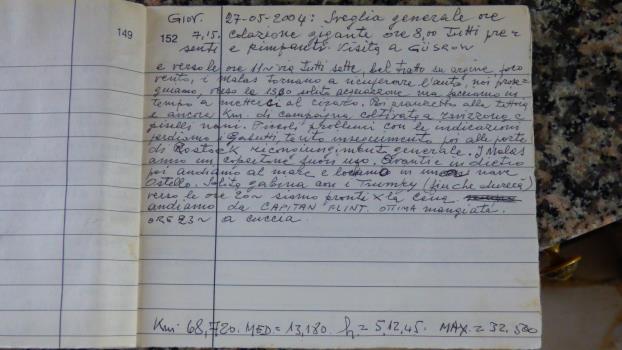 149
GIOV. 27-05-2004: Sveglia generale ore
152 7,15. colazione gigante ore 8,00 tutti pre
senti e rimpanti. Visita a GÜSROW
e verso le ore 11 via tutti sette, bel tratto su argine, poco
vento, i Malas tornano a recuperare l'auto, noi prose
guiamo, verso le 1300 solito acquazzone ma facciamo in
tempo a metterci al riparo. Poi avanti alla
e ancora Km. di campagna coltivata a e
piselli nani. Piccoli problemi con le indicazioni
perdiamo i tanto inseguimento poi alle porte
di Rostock ricongiungimento generale. I Malas
anno un copertone fuori uso. Avanti e indietro
poi andiamo al mare e in una nave
Ostello. Solita gabina con i Trumky (finche durerà)
verso le ore 20 siamo pronti x la cena
andiamo da CAPITAN FLINT. OTTIMA mangiata.
ORE 23 a cuccia.
Km. 68,720. MED = 13,180. h = 5,12,45. MAX. = 32,500